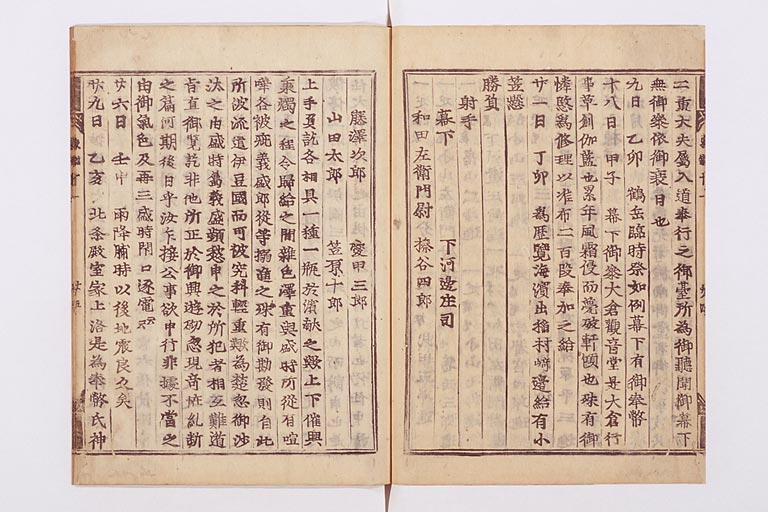 二重大夫属入道奉行之御臺所為御聽聞御幕下
無御參依御衰日也
九日 乙卯 鶴岳臨時祭如例幕下有御奉幣
十八日 甲子 幕下御參大倉觀音堂是大倉行
事草創伽藍也累年風霜侵而甍破軒傾也殊有御
憐愍為修理以准布二百段奉加之給
廿一日 丁卯 為歴覽海濱出稲村崎邊給有小
笠懸
勝負
射手
幕下 下河邊庄司
和田左衛門尉 榛谷四郎
藤澤次郎 愛甲三郎
山田太郎 笠原十郎
上手夏訖各相具一種一瓶於濱献之歟上下催興
乗燭之程令歸給之間雜色澤重與盛時所從有喧
嘩各被疵義盛郎從等搦進之殊有御勘發則自此
所波流遣伊豆國而可被究科輕重歟為
汰之由盛時属義盛頻愁申之於所犯者相互難道
肯直御詫非他所正於御興遊砌忽現奇恠乱新
之篇何期後日乎汝乍接公事欲申行非據不當之
由御氣色及再三盛時閇口逐電云
廿六日 壬申 雨降晡時以後地震良久矣
廿九日 乙亥 北条殿室家上洛是為奉幣氏神